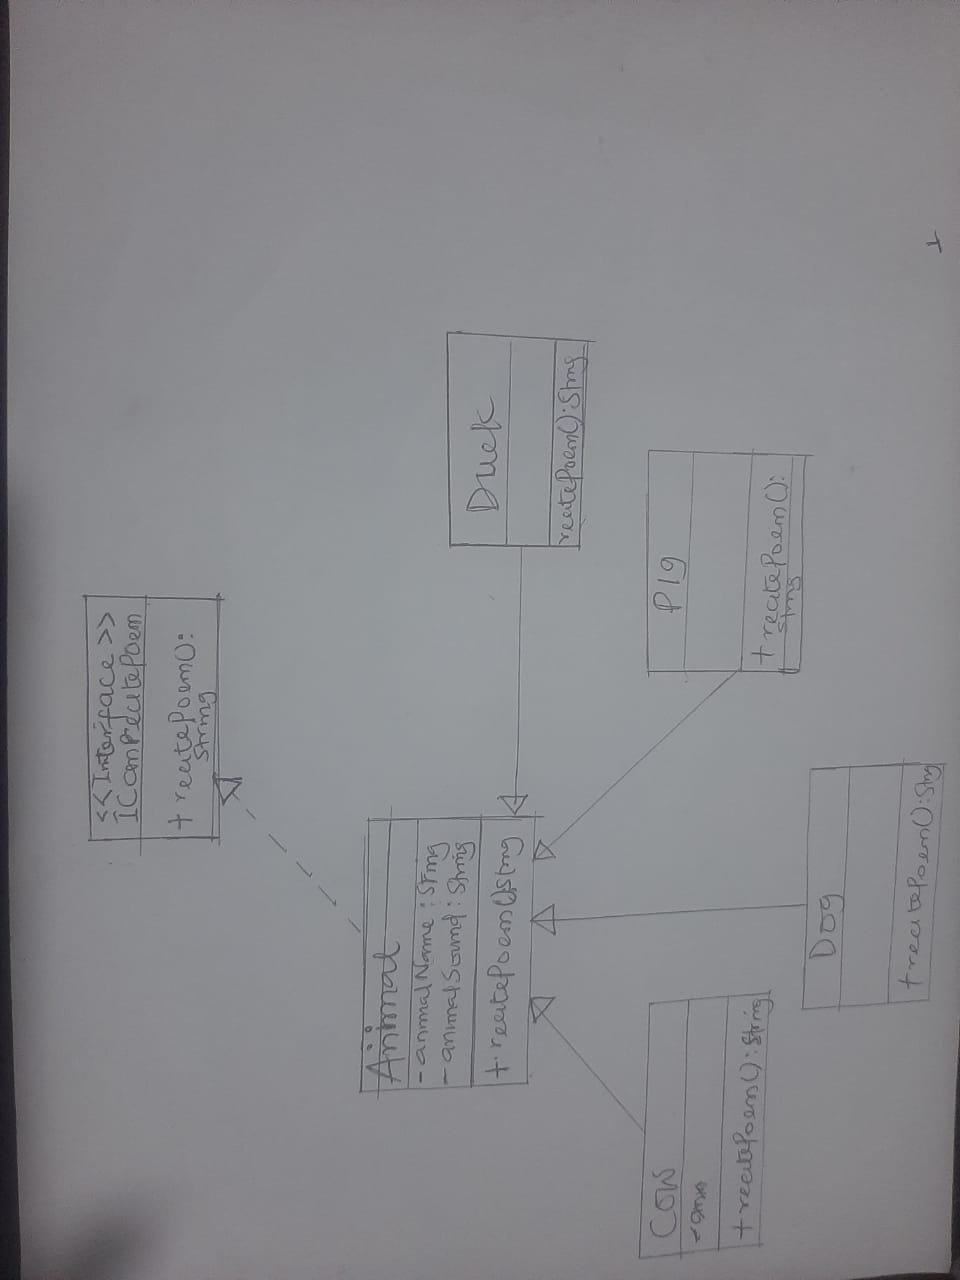 <<Interface>>
ICanRecitePoem
+ recitePoem():
String
Animal
- animalName : String
- animalSound : String
+ recitePoem():String
Duck
recitePoem():String
Pig
+ recitePoem():
String
Dog
+ recitePoem():String
Cow
+ recitePoem():String